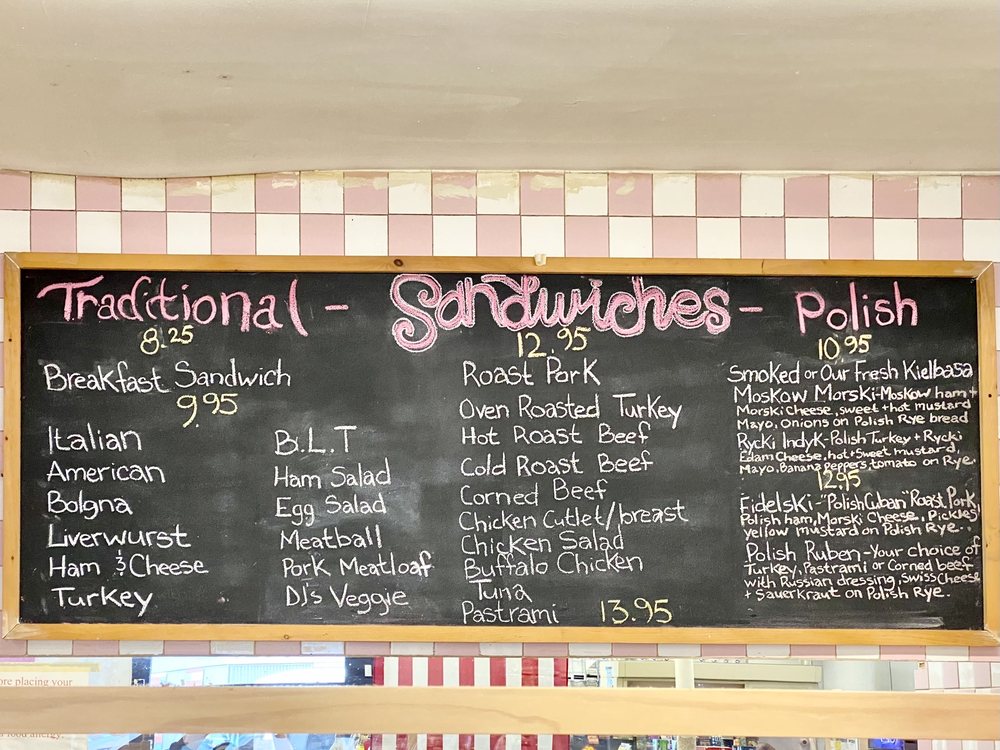 Traditional - Sandwiches - Polish
8.25
Breakfast Sandwich
9.95
Italian
American
Bolgna
Liverwurst
Ham & Cheese
Turkey
B.L.T
Ham Salad
Egg Salad
Meatball
Pork Meatloaf
DJ's Veggie
12.95
Roast Pork
Oven Roasted Turkey
Hot Roast Beef
Cold Roast Beef
Corned Beef
Chicken Cutlet/breast
Chicken Salad
Buffalo Chicken
Tuna
Pastrami 13.95
10.95
Smoked or Our Fresh Kielbasa
Moskow Morski-Moskow ham +
Morski Cheese, sweet + hot mustard
Mayo, Onions on Polish Rye bread
Rycki Indyk-Polish Turkey + Rycki
Edam Cheese, hot + Sweet mustard,
Mayo, Banana Peppers, tomato on Rye.
12.95
Fidelski-"Polish Cuban" Roast Pork,
Polish ham, Morski Cheese, Pickles
yellow mustard on Polish Rye.
Polish Ruben-Your choice of
Turkey, Pastrami or Corned beef
with Russian dressing, Swiss Cheese
+ Sauerkraut on Polish Rye.
ore placing your
food allergy.